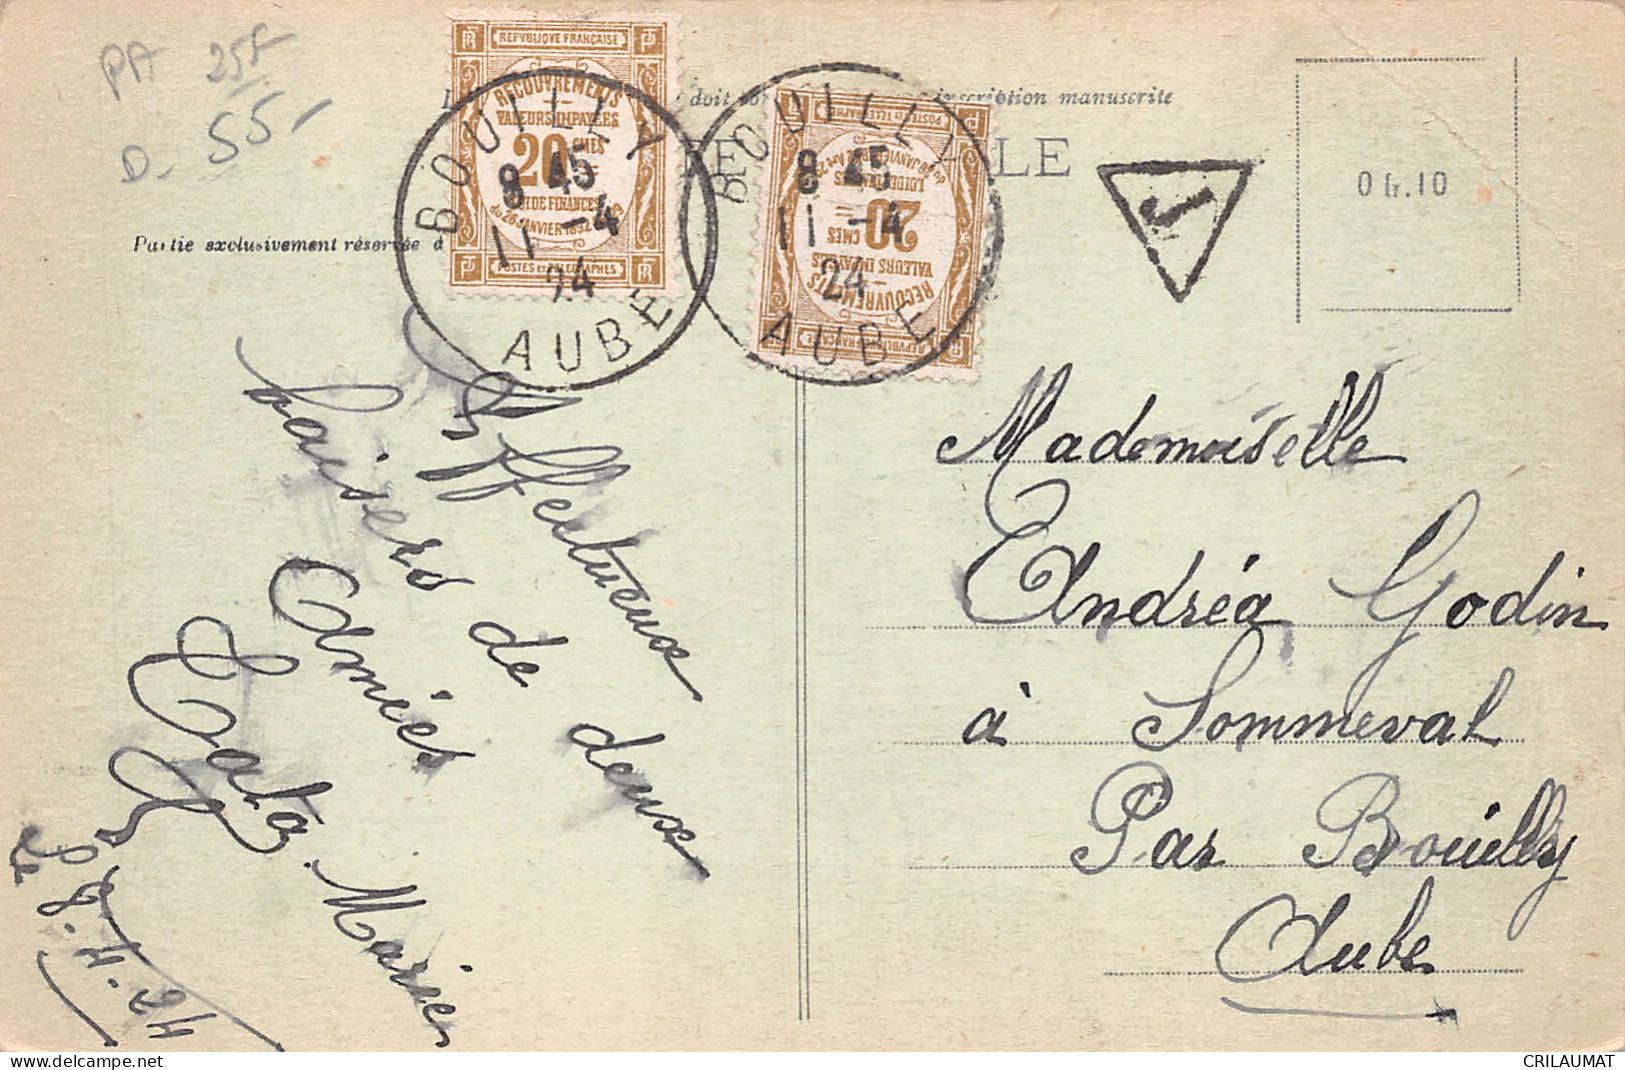 PA 255
D- 55-
REPVBLIQVE FRANÇAISE
RECOUVREMENTS
VALEURS IMPAYÉES
20 CMES
LOI DE FINANCES
du 26 JANVIER 1892
POSTES ET TELEGRAPHES
BOUILLY
8 45
11 -4
24
AUBE
REPVBLIQVE FRANÇAISE
RECOUVREMENTS
VALEURS IMPAYÉES
20 CMES
POSTES ET TELEGRAPHES
BOUILLY
8 45
11 -4
24
AUBE
doit inscription manuscrite
LE
T
0 fr.10
Partie exclusivement réservée à
Affectueux
baisers de deux
Amies
Marie
Le 8.4.24
Mademoiselle
Andréa Godin
à Sommeval
Par Bouilly
Aube
delcampe.net
CRILAUMAT